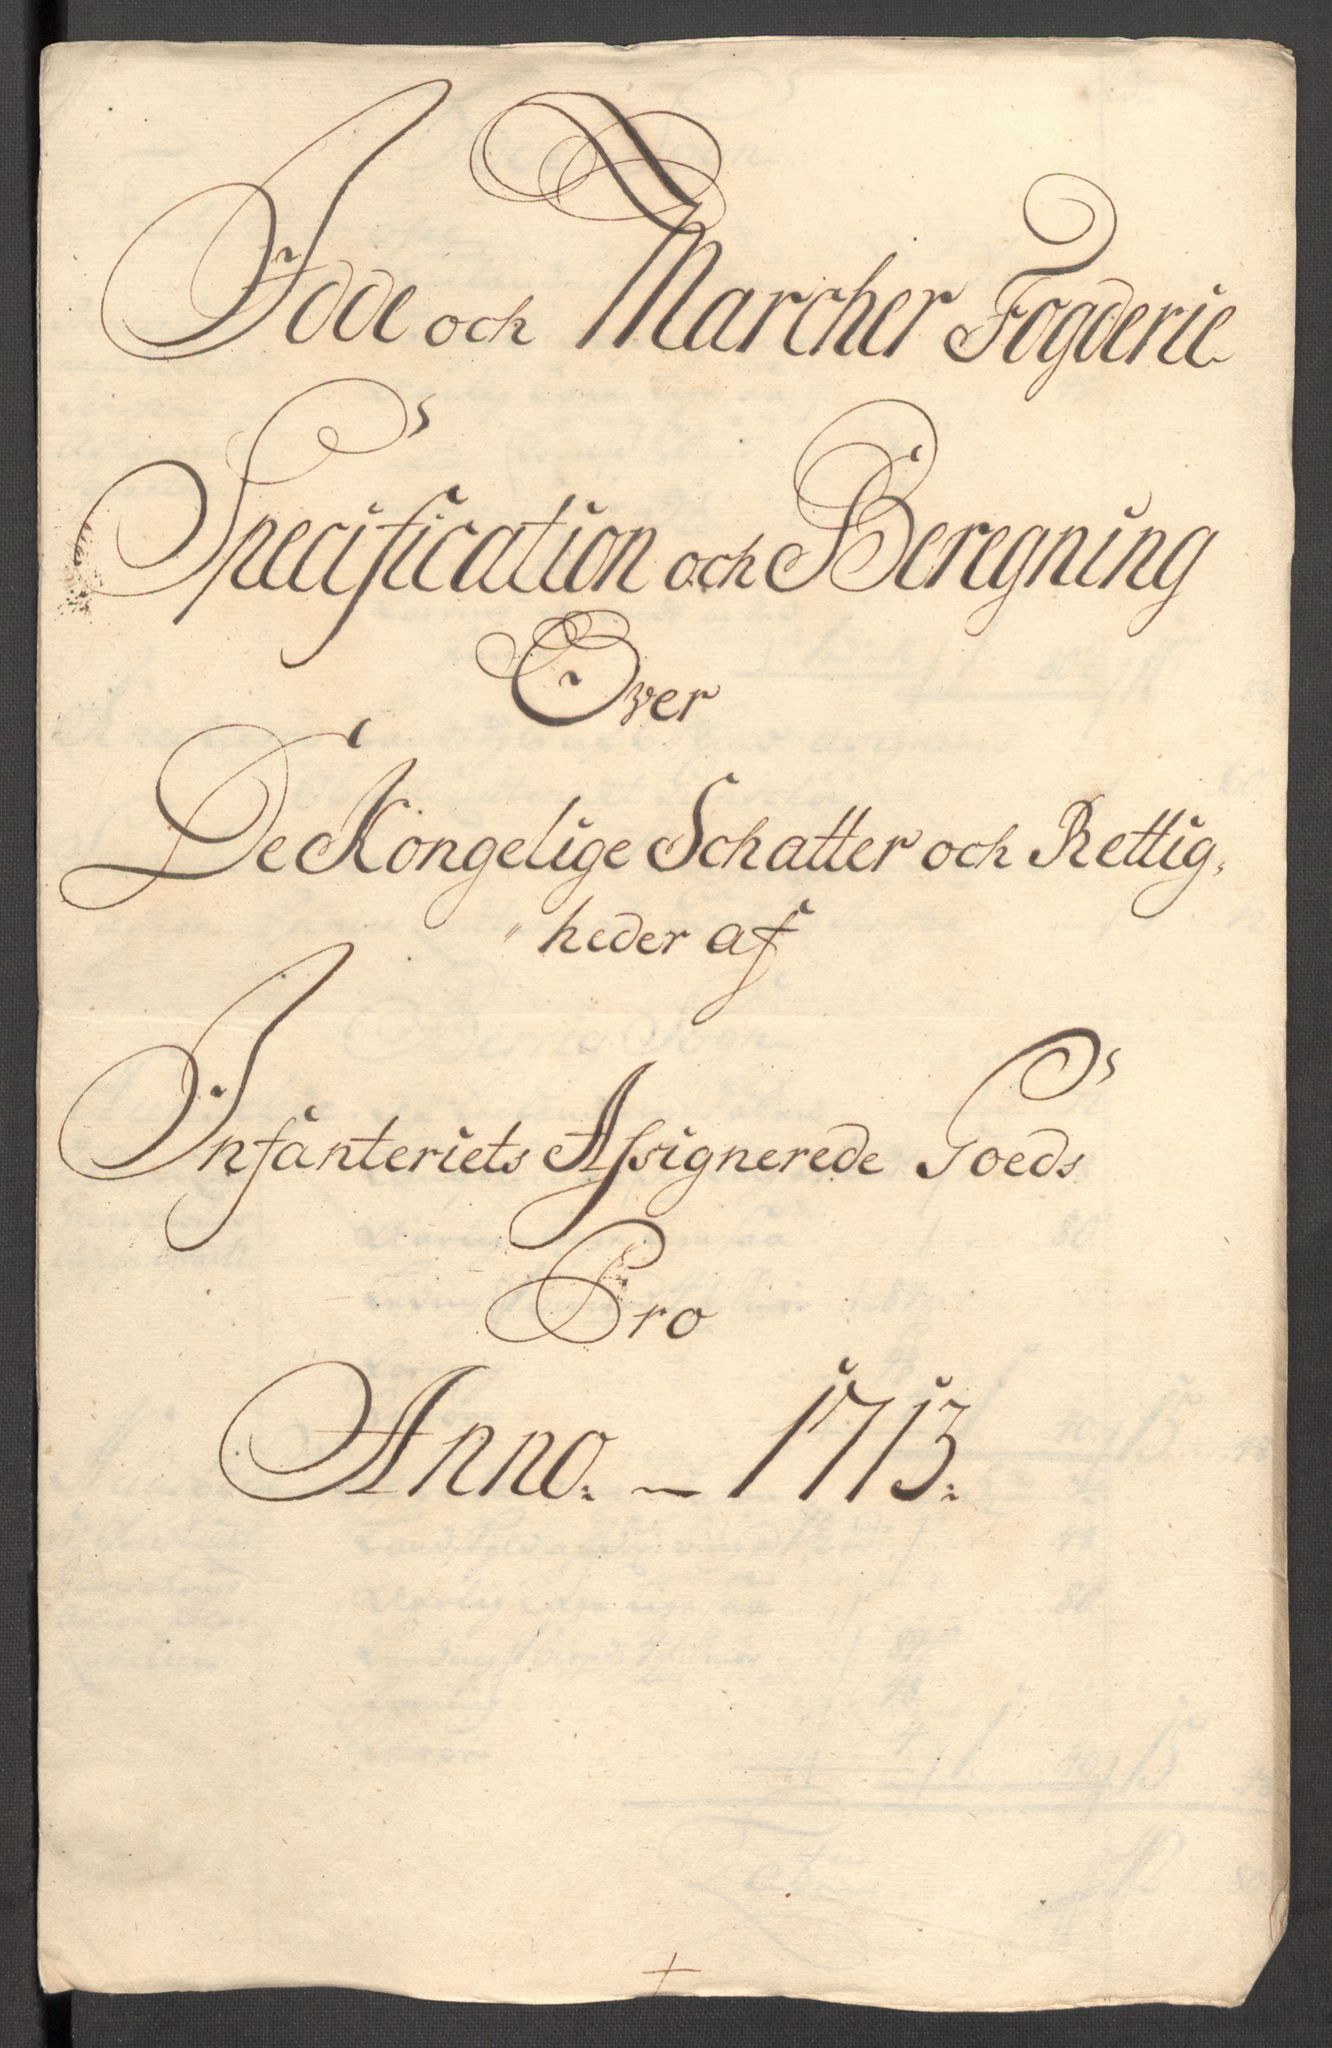 Idde och Marcher Fogderie
Specification och Beregning
Over
De Kongelige Schatter och Rettig,
" heder af
Infanteriets Assignerede Goeds
Pro
Anno. – 1713.